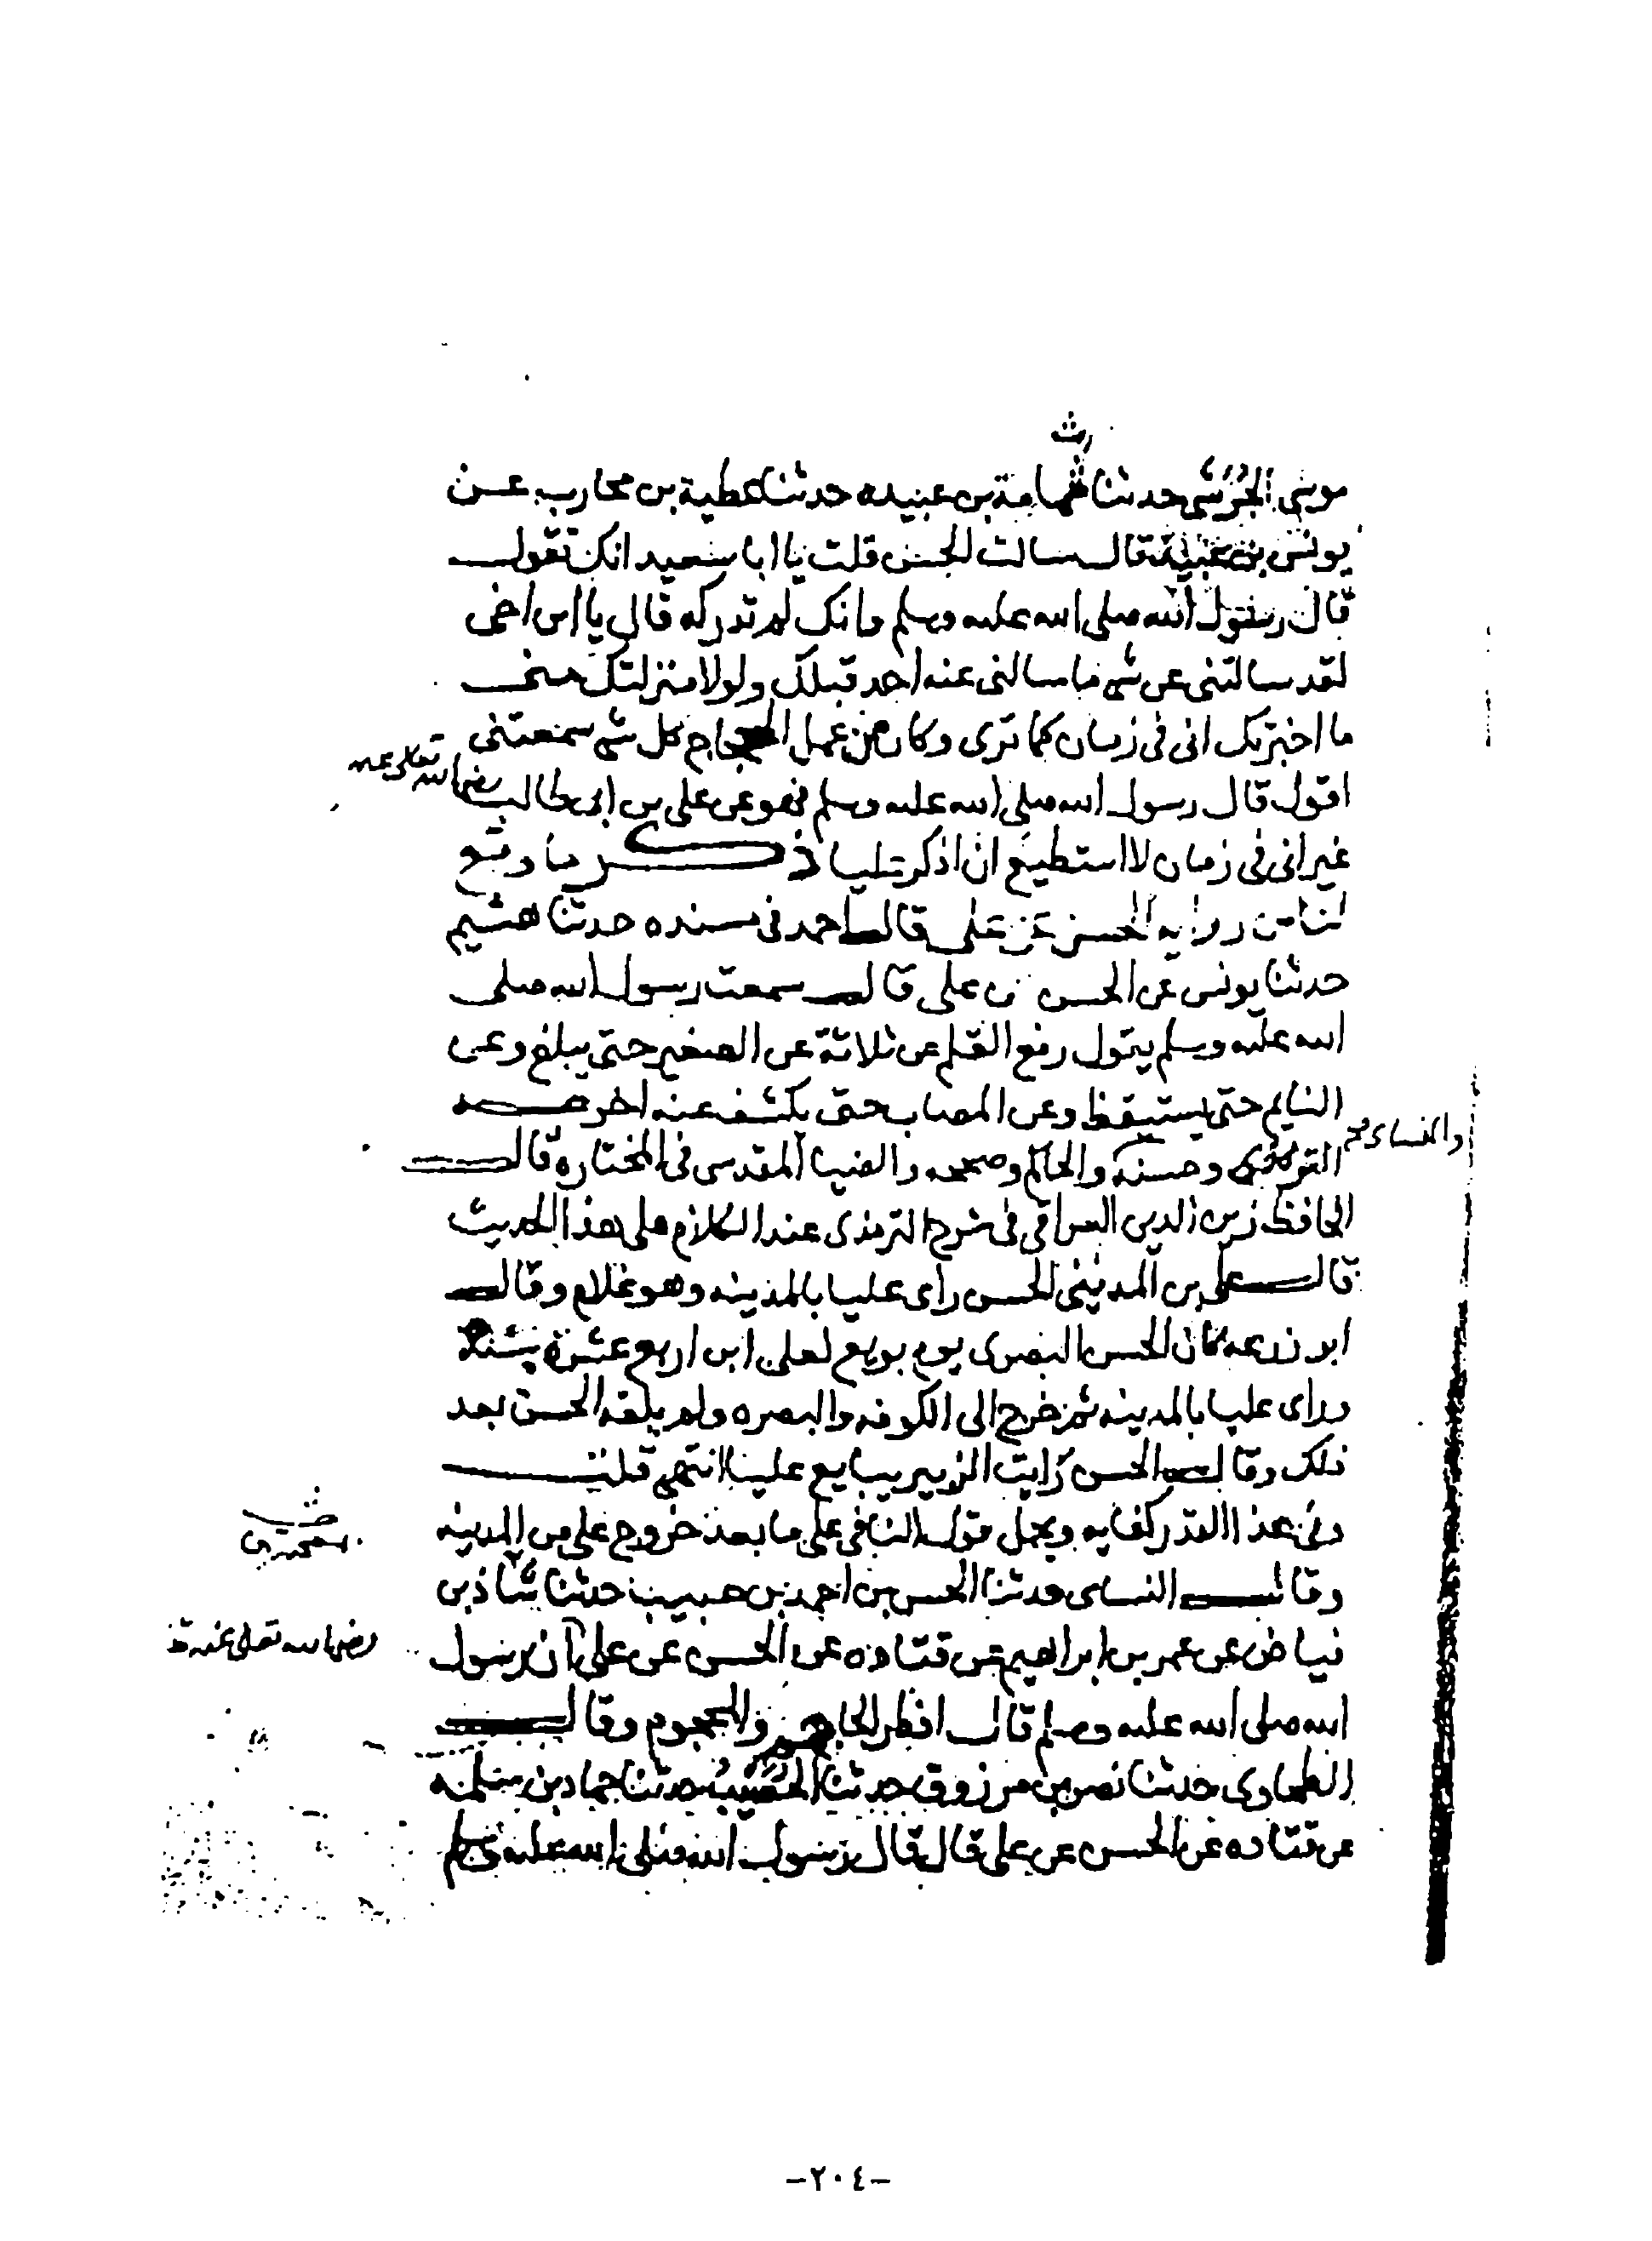 موسى الجرشي حدثنا ثمامة بن عبيده حدثنا عطية بن محارب عن
يونس بن عبيد قال سالت الحسن قلت يا ابا سعيد انك تقول
قال رسول الله صلى الله عليه وسلم وانك لم تدركه قال يا ابن اخي
لقد سالتني عن شي ما سالني عنه احد قبلك ولولا منزلتك مني
ما اخبرتك اني في زمان كما ترى وكان من عمل الحجاج كل شي سمعتني
اقول قال رسول الله صلى الله عليه وسلم فهو عن علي بن ابي طالب
رضي الله تعالى عنه
غير اني في زمان لا استطيع ان اذكر عليا ذكر ما وقع
لنا من رواية الحسن عن علي قال احمد في مسنده حدثنا هشيم
حدثنا يونس عن الحسن عن علي قال سمعت رسول الله صلى
الله عليه وسلم يقول رفع القلم عن ثلاثة عن الصغير حتى يبلغ وعن
النايم حتى يستيقظ وعن المصاب حتى يكشف عنه اخرجه
الترمذي وحسنه والحاكم وصححه والضيا المقدسي في المختاره قال
والنساي صح
الحافظ زين الدين العراقي في شرح الترمذي عند الكلام على هذا الحديث
قال علي بن المديني الحسن راى عليا بالمدينه وهو غلام وقال
ابو زرعه كان الحسن البصري يوم بويع لعلي ابن اربع عشرة سنة
وراى عليا بالمدينه ثم خرج الى الكوفه والبصره ولم يلقه الحسن بعد
ذلك وقال الحسن رايت الزبير يبايع عليا انتهى قلت
وفي هذا القدر كفايه ويحمل قول النافي على ما بعد خروج علي من المدينه
وقال النساى حدثنا الحسن بن احمد بن حبيب حدثنا شاذ بن
فياض عن عمر بن ابراهيم عن قتاده عن الحسن عن علي ان رسول
رضي الله تعالى عنه
الله صلى الله عليه وسلم قال افطر الحاجم والمحجوم وقال
الطحاوي حدثنا نصر بن مرزوق حدثنا الخصيب حدثنا حماد بن سلمه
عن قتاده عن الحسن عن علي قال قال رسول الله صلى الله عليه وسلم
-٢٠٤-